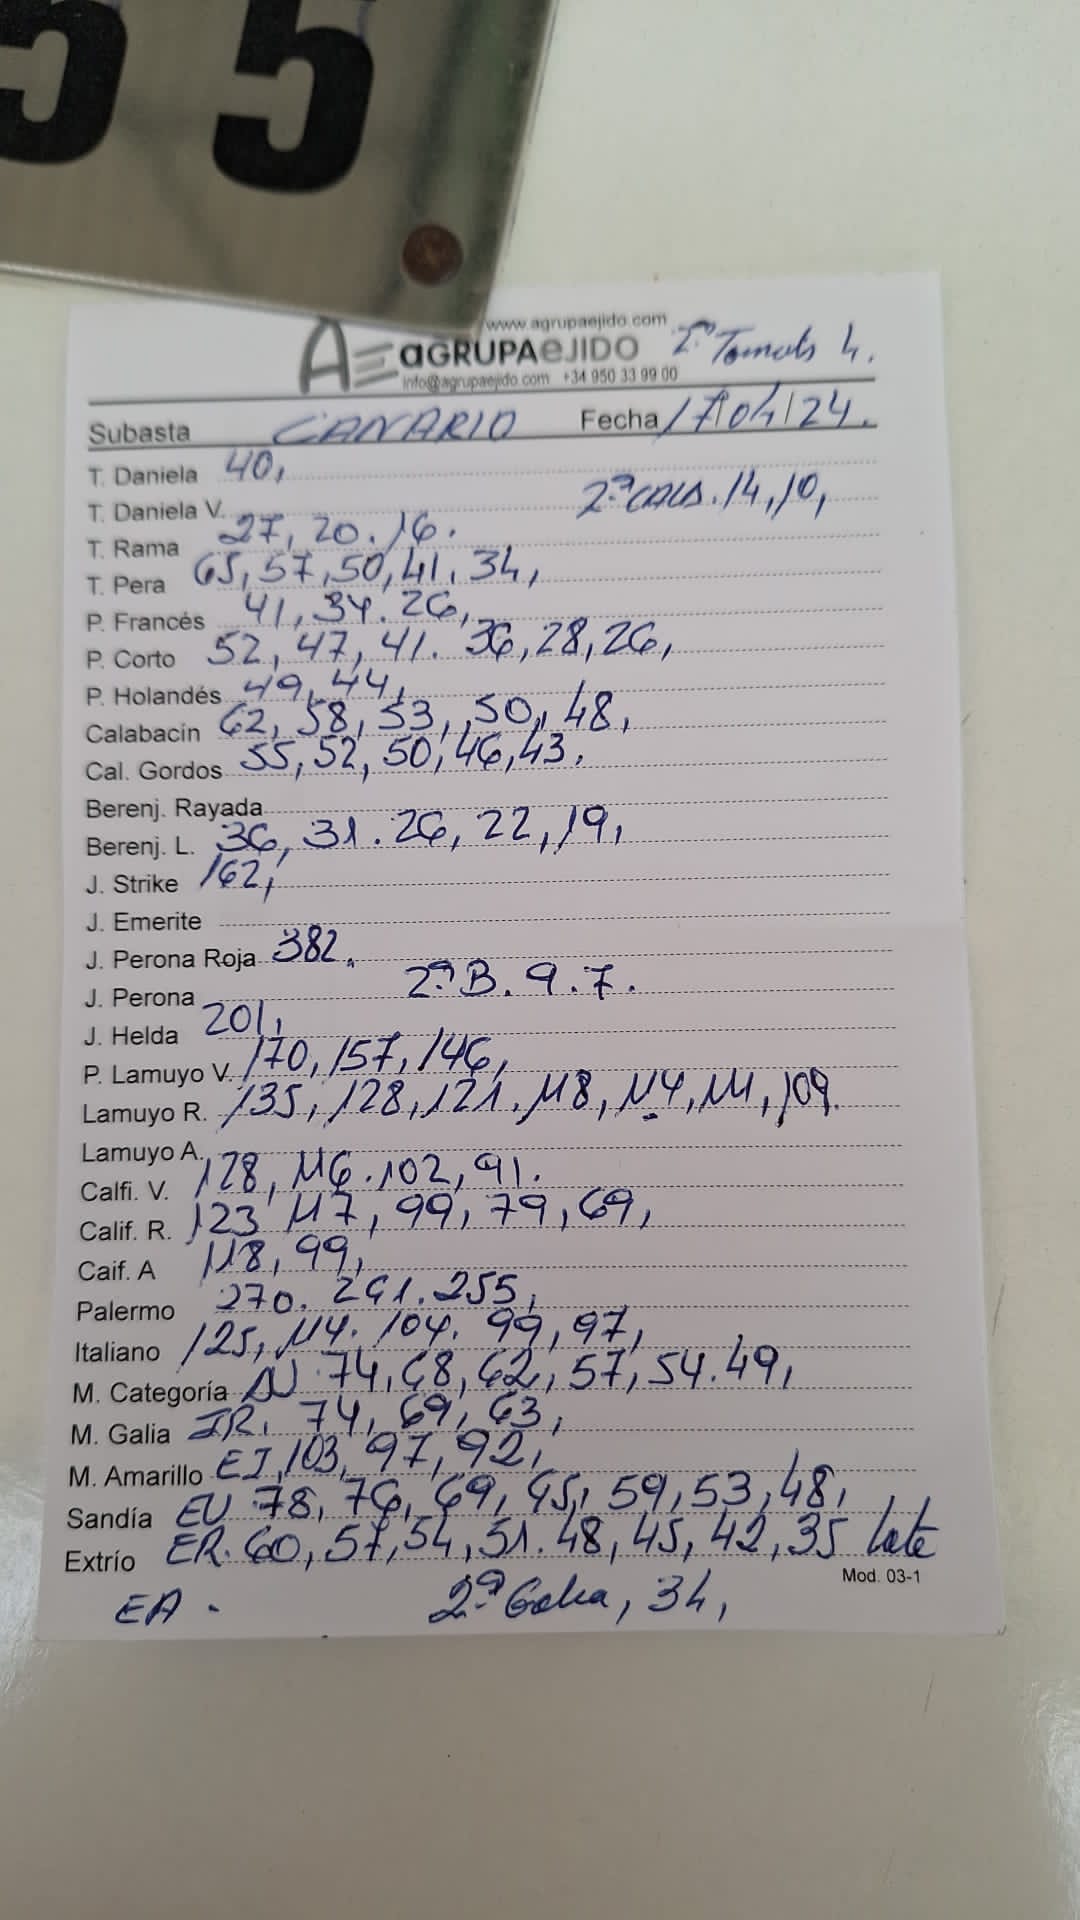 55
www.agrupaejido.com
AE aGRUPAeJIDO 2ª Tomate 4.
info@agrupaejido.com +34 950 33 99 00
Subasta CANARIO Fecha 17/04/24.
T. Daniela 40,
T. Daniela V. 2ª CALA. 14, 10,
T. Rama 27, 20. 16.
T. Pera 65, 57, 50, 41, 34,
P. Francés 41, 34. 26,
P. Corto 52, 47, 41. 36, 28, 26,
P. Holandés 49, 44,
Calabacín 62, 58, 53, 50, 48,
Cal. Gordos 55, 52, 50, 46, 43.
Berenj. Rayada
Berenj. L. 36, 31. 26, 22, 19,
J. Strike 162,
J. Emerite
J. Perona Roja 382.
J. Perona 2ª B. 9. 7.
J. Helda 201,
P. Lamuyo V. 170, 157, 146,
Lamuyo R. 135, 128, 121. 118, 114, 111, 109.
Lamuyo A.
Calfi. V. 128, 116. 102, 91.
Calif. R. 123 117, 99, 79, 69,
Caif. A 118, 99,
Palermo 270. 261. 255,
Italiano 125, 114. 104. 99, 97,
M. Categoría 74, 68, 62, 57, 54. 49,
M. Galia IR. 74, 69, 63,
M. Amarillo EJ, 103, 97, 92,
Sandía EU 78, 76, 69, 65, 59, 53, 48,
Extrío ER. 60, 57, 54, 51. 48, 45, 42, 35 lote
Mod. 03-1
EA. 2ª Galia, 34,